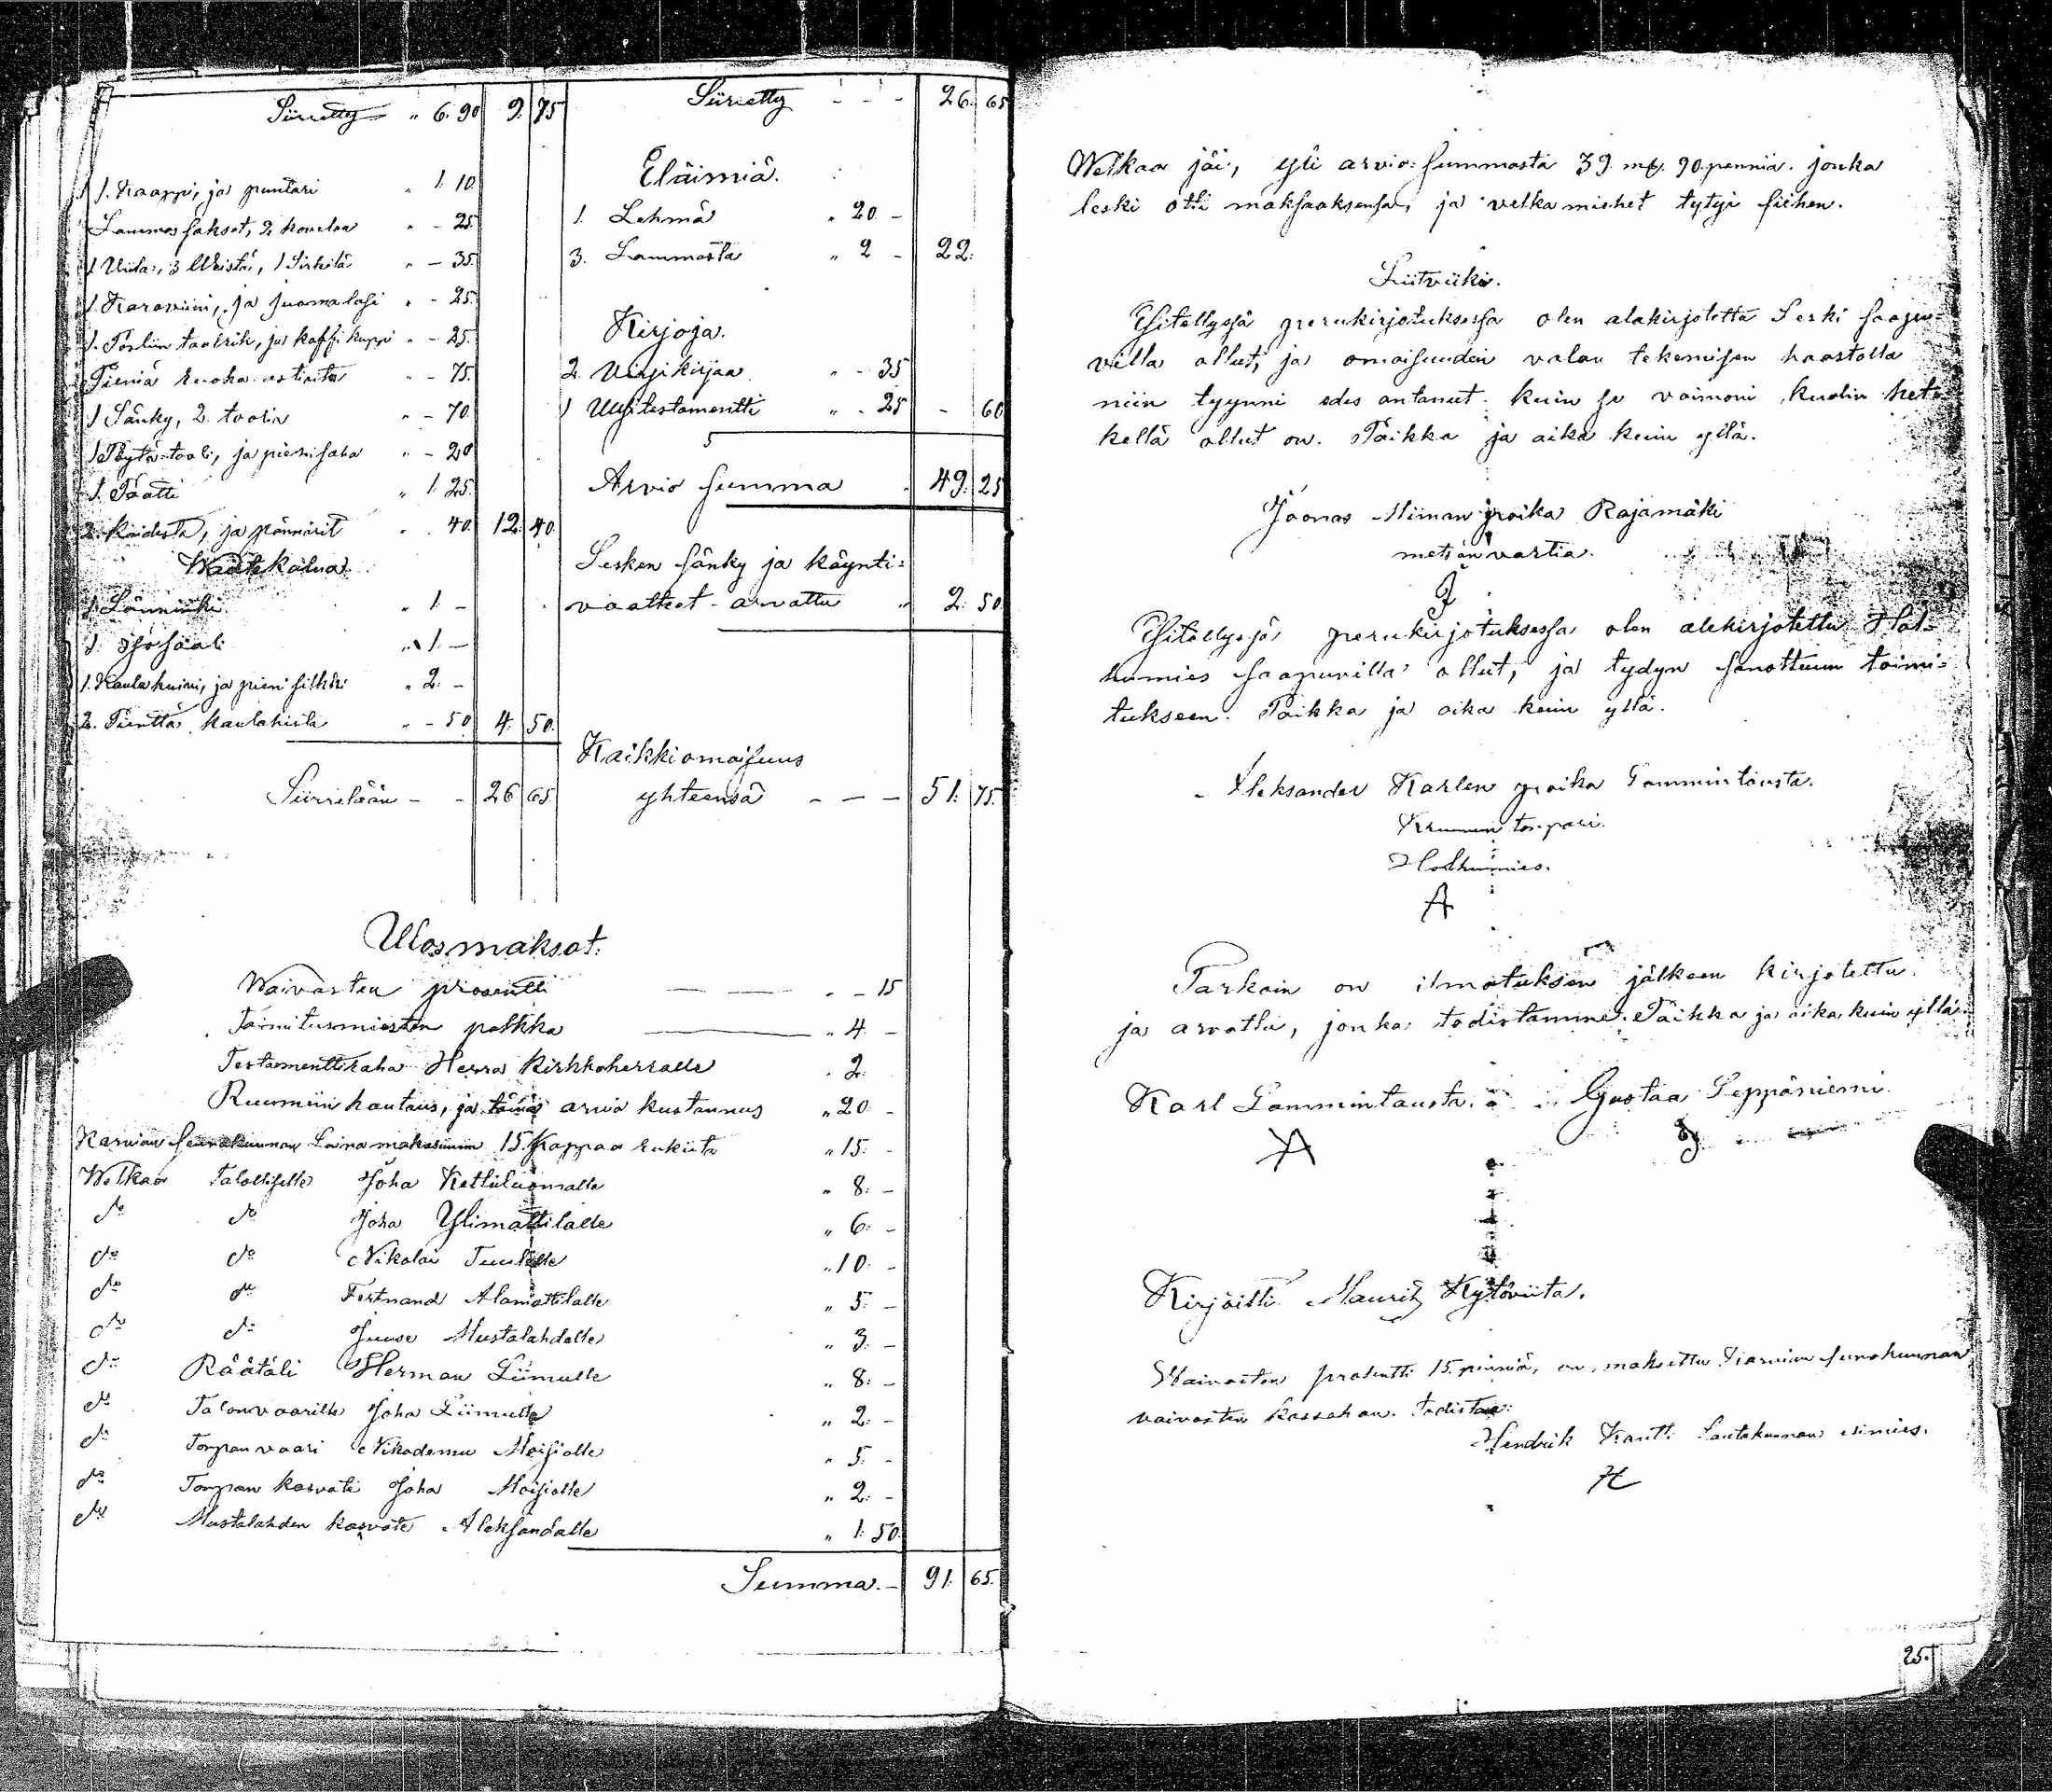 Siirretty " 6. 90 9. 75
1. Kaappi, ja puntari " 1. 10.
Lammas sakset, 2 " - 25.
1 Viila, 3 Weistä, 1 Sirkilä " - 35.
1. Karaviini, ja juomalasi " - 25.
1. Poslin taalrik, ja kaffi kuppi " - 25.
Pieniä ruoka astioita " - 75.
1 Sänky, 2 toolia " - 70.
1 Pöytä-tooli, ja pieni saha " - 20
1. Paatti " 1. 25.
2. ja " . 40. 12. 40.
Waatekalua.
1. Länninki " 1. -
1. " 1. -
1. Kaulahuivi, ja pieni silkki " 2. -
2. Pienttä kaulahivia " - 50 4. 50.
Siirretään - - 26 65
Siirretty - - - 26. 65
Eläimiä.
1. Lehmä " 20 -
3. Lammasta " 2 - 22.
Kirjoja.
2. Virsikirjaa " - 35
1 Uusitestamentti " - 25 - 60
Arvio summa " 49. 25
Lesken sänky ja käynti=
vaatteet - arvattu " 2. 50
Kaikki omaisuus
yhteensä - - - 51. 75.
Ulosmaksot.
Waivasten prosentti " - 15
Toimitusmiesten palkka " 4 -
Testamenttiraha Herra Kirkkoherralle " 2.
Ruumiin hautaus, ja tämä arvio kustannus " 20 -
Karvian seurakunnan Laina makasiinin 15. Kappaa rukiita " 15. -
Welkaa Talolliselle Joha Kettuluomalle " 8. -
do do Joha Ylimattilalle " 6. -
do do Nikolai Tuulelle " 10. -
do do Fertnand Alamattilalle " 5. -
do do Juuse Mustalahdelle " 3. -
do Räätäli Herman Liimulle " 8. -
do Talonvaarille Joha Liimulle " 2. -
do Torpan vaari Nikodemu Moisiolle " 5. -
do Torpan kasvati Joha Moisiolle " 2. -
do Mustalahden kasvate Aleksandalle " 1. 50.
Summa. - 91. 65.
Welkaa jäi, yli arvio-summasta 39. mk. 90. penniä. jonka
leski otti maksaaksensa, ja velkamiehet tytyi siihen.
Liitviiki.
Esitellyssä perukirjotuksessa olen alakirjotettu Leski saapu=
villa ollut, ja omaisuuden valan tekemisen haastolla
niin tyynni edes antanut. kuin se vaimoni kuolin het=
kellä ollut on. Paikka ja aika kuin yllä.
Joonas Miinan poika Rajamäki
metsänvartia.
J
Esitellyssä perukirjotuksessa olen alekirjotettu Hol=
humies saapuvilla ollut, ja tydyn sanottuun toimi=
tukseen. Paikka ja aika kuin yllä.
Aleksander Karlen poika Lammintausta.
Kruunun torpari.
Holhumies.
A
Tarkoin on ilmotuksen jälkeen kirjotettu
ja arvattu, jonka todistamme. Paikka ja aika kuin yllä.
Karl Lammintausta. Gustaa Seppäniemi.
Kirjoitti Maurits Kytöviita.
Waivasten prosentti 15. penniä, on maksettu Karvian seurakunnan
vaivasten kassahan. todistaa:
Hendrik Kantti Lautakunnan esimies.
H
25.